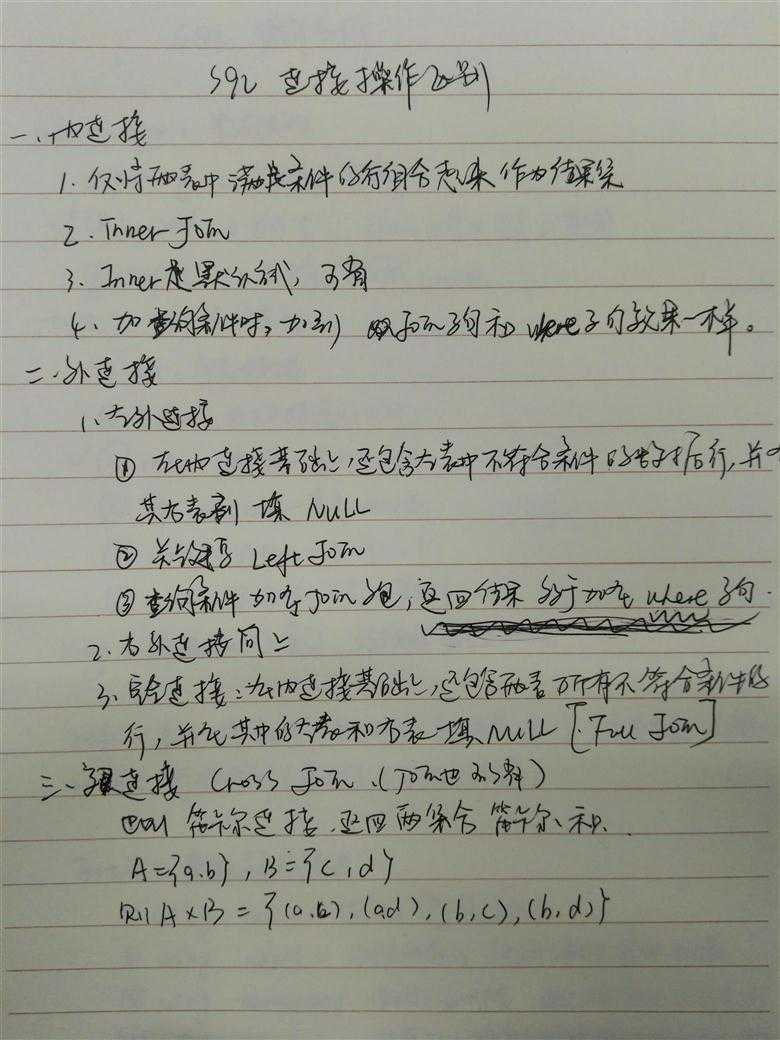 SQL 连接操作区别
一、内连接
1. 仅将两表中满足条件的行组合起来作为结果集
2. Inner Join
3. Inner是默认方式，可省
4. 加查询条件时，加到 Join子句和where子句效果一样。
二、外连接
1. 左外连接
① 在内连接基础上，还包含左表中不符合条件的数据行，并
其右表列 填 NULL
② 关键字 Left Join
③ 查询条件加在Join子句，返回结果 多于加在 where 子句.
2. 右外连接同上
3. 完全连接：在内连接基础上，还包含两表所有不符合条件的
行，并在其中的左表和右表填NULL [Full Join]
三、交叉连接 Cross Join. (Join也可以省)
笛卡尔连接. 返回两集合 笛卡尔积.
A={a.b}, B={c,d}
则 A×B = {(a.c), (a,d), (b,c), (b,d)}